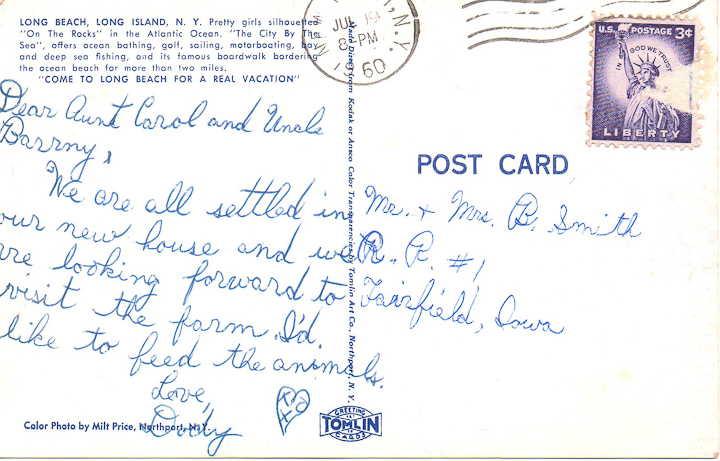 LONG BEACH, LONG ISLAND, N. Y. Pretty girls silhouetted
"On The Rocks" in the Atlantic Ocean. "The City By The
Sea", offers ocean bathing, golf, sailing, motorboating, bay
and deep sea fishing, and its famous boardwalk bordering
the ocean beach for more than two miles.
"COME TO LONG BEACH FOR A REAL VACATION"
Dear Aunt Carol and Uncle
Barrny,
We are all settled in
our new house and we
are looking forward to
visit the farm. I'd
like to feed the animals.
Love,
Dody
Color Photo by Milt Price, Northport, N.Y.
Made Direct from Kodak or Ansco Color Transparencies by Tomlin Art Co., Northport, N. Y.
N.Y.
JUL 19
8 PM
1960
U.S. POSTAGE 3¢
IN GOD WE TRUST
LIBERTY
POST CARD
Mr. + Mrs. B. Smith
R. R. #1
Fairfield, Iowa
XX
GREETING
TOMLIN
CARDS